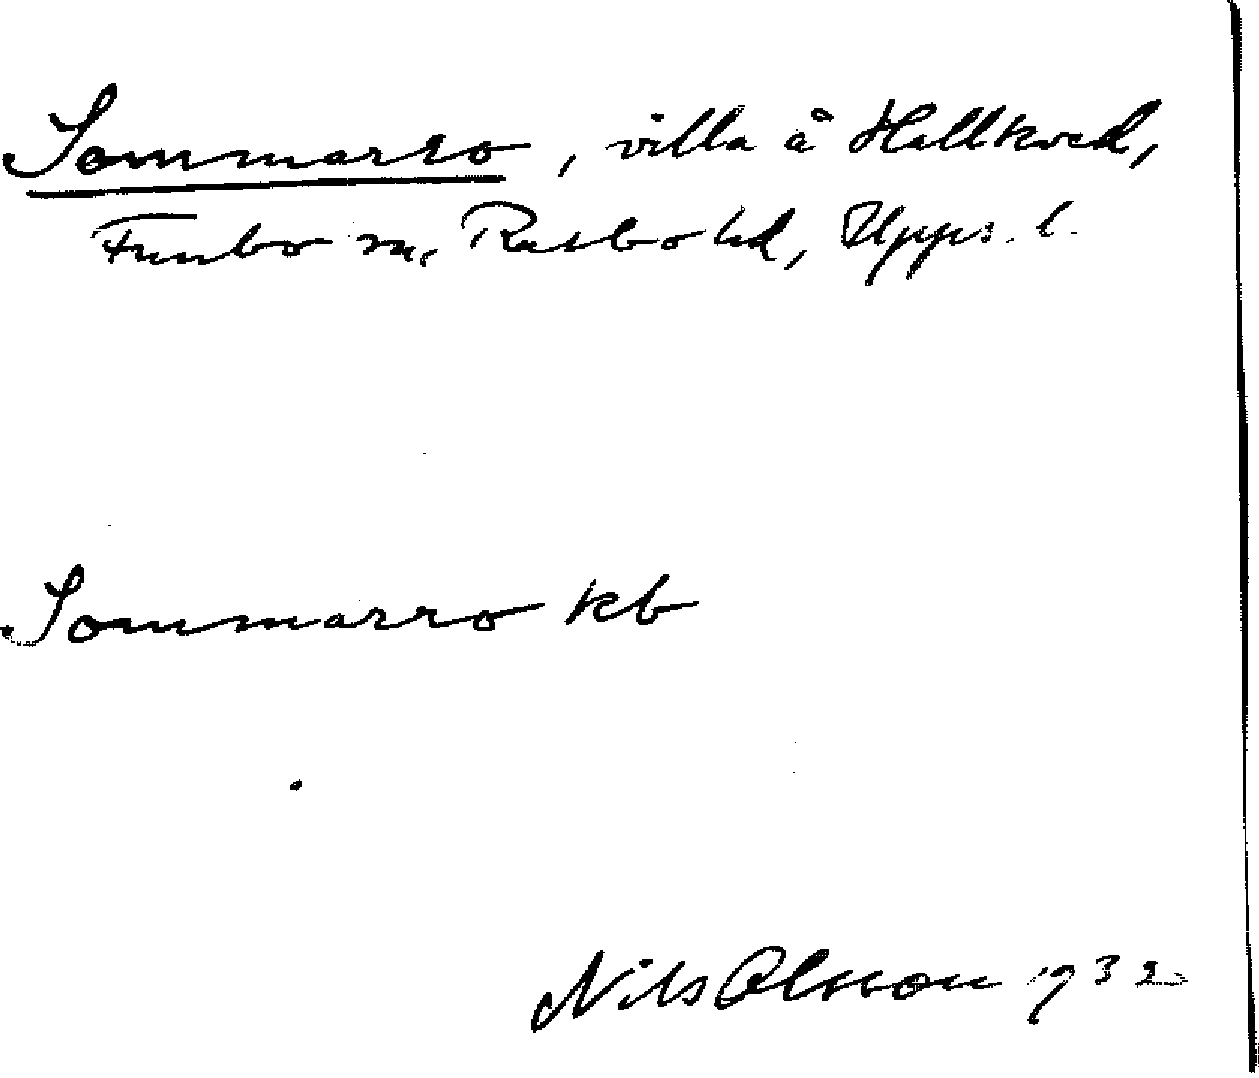 Sommarro, villa å Hallkved,
Funbo sn, Rasbo hd, Upps. l.
Sommarro kb
Nils Olsson 1932